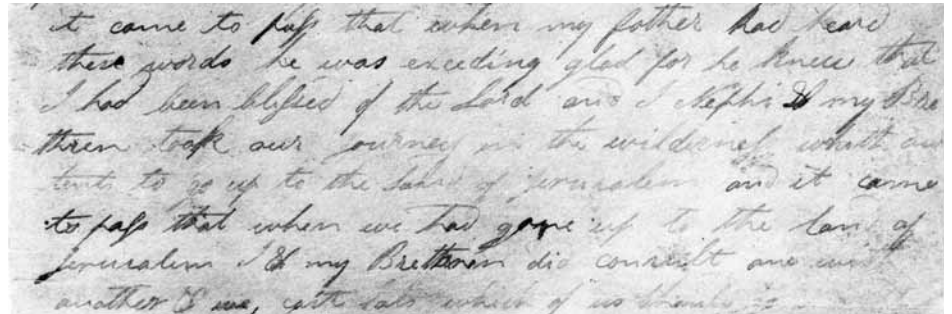 it came to pass that when my father had heard
these words he was exceding glad for he knew that
I had been blessed of the Lord and I Nephi & my Bre
thren took our journey in the wilderness with our
tents to go up to the land of jerusalem and it came
to pass that when we had gone up to the land of
jerusalem I & my Brethren did consult one with
another & we, cast lots which of us should